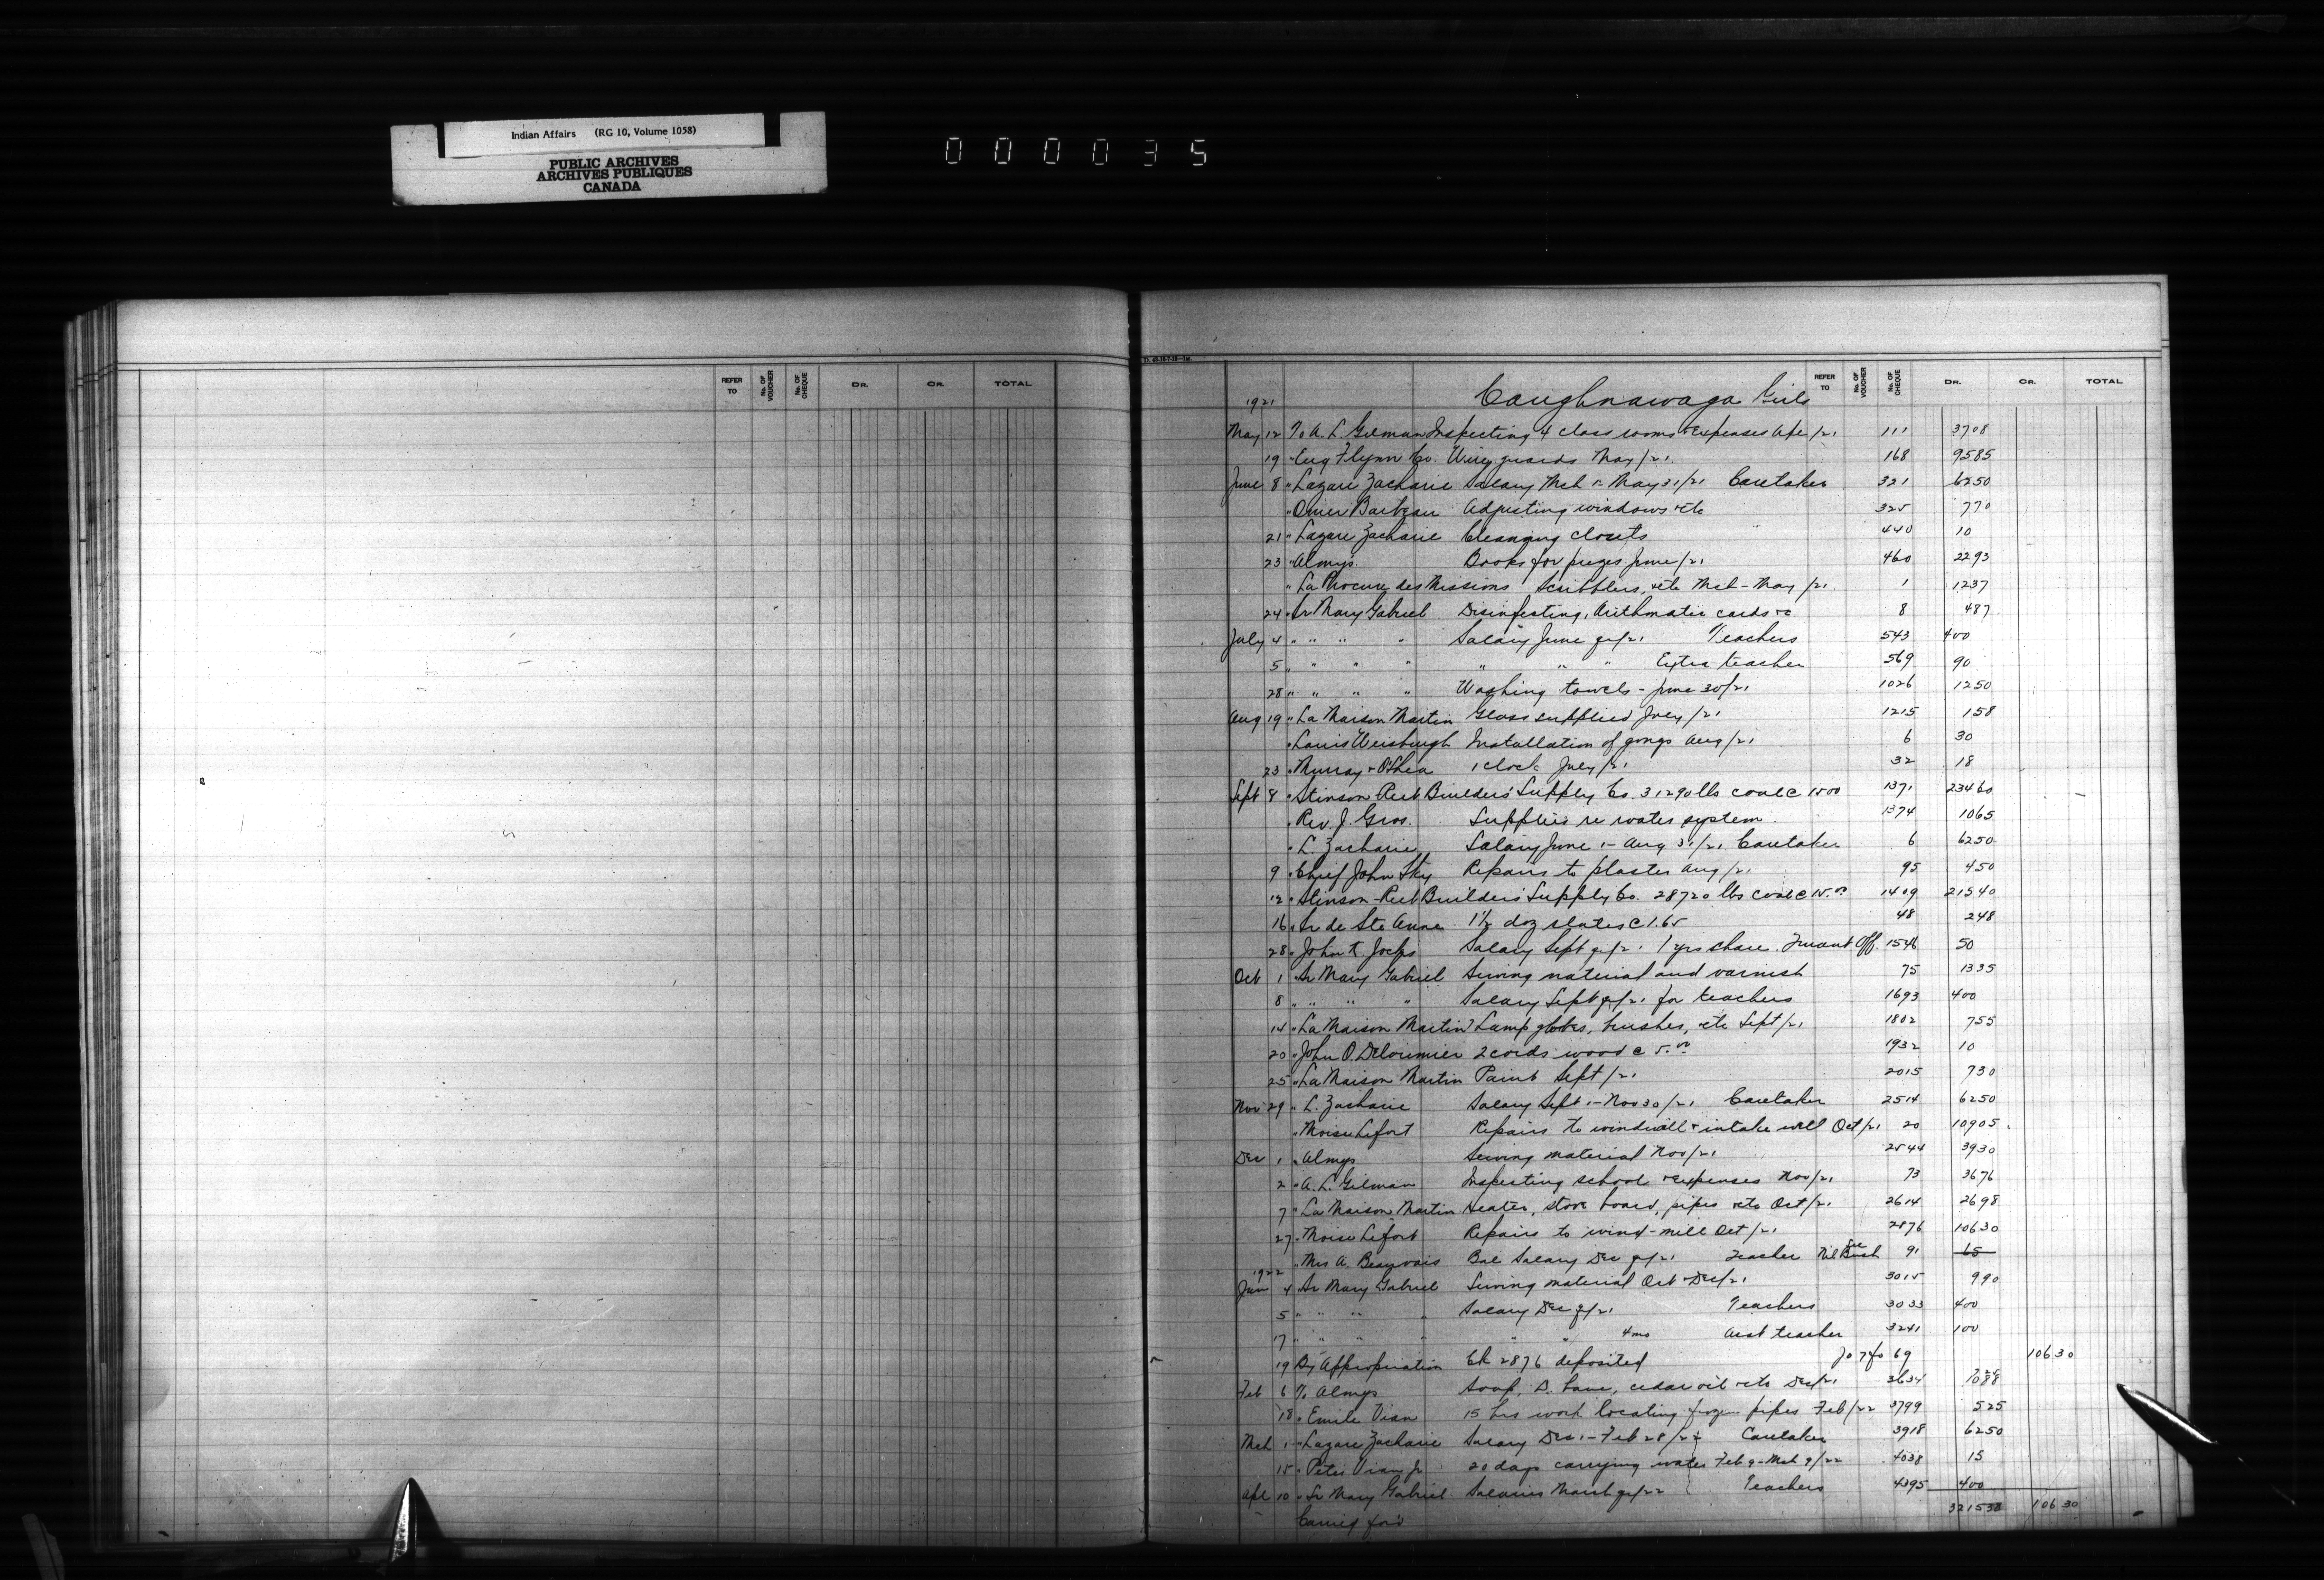 Indian Affairs (RG 10, Volume 1058)
PUBLIC ARCHIVES
ARCHIVES PUBLIQUES
CANADA
000035
REFER TO No. OF VOUCHER No. OF CHEQUE DR. CR. TOTAL
REFER TO No. OF VOUCHER No. OF CHEQUE DR. CR. TOTAL
1921 Caughnawaga Girls
May 12 To A. L. Gilman Inspecting 4 class rooms & expenses Apl /21 111 3708
19 " Eug Flynn Co. Wire guards May /21 168 9585
June 8 " Lazare Zacharie Salary Mch 1 - May 31/21 Caretaker 321 6250
" Omer Barbeau Adjusting windows etc 325 770
21 " Lazare Zacharie Cleaning closets 440 10
23 " Almys Books for prizes June /21 460 2293
" La Procure des Missions Scribblers, etc Mch - May /21 1 1237
24 " Sr Mary Gabriel Disinfecting, Arithmatic cards &c 8 487
July 4 " " " " Salary June qr/21 Teachers 543 400
5 " " " " " " " Extra teacher 569 90
28 " " " " Washing towels - June 30/21 1026 1250
Aug 19 " La Maison Martin Glass supplied July /21 1215 158
" Louis Weisburgh Installation of gongs Aug /21 6 30
23 " Murray & O'Shea 1 clock July /21 32 18
Sept 8 " Stinson Reeb Builders' Supply Co. 31290 lbs coal @ 1500 1371 23460
" Rev. J. Gras. Supplies re water system 1374 1065
" L. Zacharie Salary June 1 - Aug 31/21 Caretaker 6 6250
9 " Chief John Sky Repairs to plaster Aug /21 95 450
12 " Stinson-Reeb Builders' Supply Co. 28720 lbs coal @ 15.00 1409 21540
16 " Sr de Ste Anne 1½ doz slates @ 1.65 48 248
28 " John K Jocks Salary Sept qr/21 1 yrs share Truant Off. 1546 50
Oct 1 " Sr Mary Gabriel Sewing material and varnish 75 1335
8 " " " " Salary Sept qr/21 for teachers 1693 400
14 " La Maison Martin Lamp globes, brushes, etc Sept /21 1802 755
20 " John O. Delorimier 2 cords wood @ 5.00 1932 10
25 " La Maison Martin Paint Sept /21 2015 730
Nov 29 " L. Zacharie Salary Sept 1 - Nov 30/21 Caretaker 2514 6250
" Moise Lefort Repairs to windmill & intake well Oct /21 20 10905
Dec 1 " Almys Sewing material Nov /21 2544 3930
2 " A. L. Gilman Inspecting school & expenses Nov /21 73 3676
7 " La Maison Martin Heater, stove board, pipes etc Oct /21 2614 2698
27 " Moise Lefort Repairs to wind-mill Oct /21 2876 10630
" Mrs A. Beauvais Bal Salary Dec qr/21 Teacher See Bush 91 65
1922
Jan 4 " Sr Mary Gabriel Sewing material Oct - Dec/21 3015 990
5 " " " " Salary Dec qr/21 Teachers 3033 400
17 " " " " " " 4 mo Asst teacher 3241 100
19 By Appropriation Ck 2876 deposited Jo 7 fo 69 10630
Feb 6 To Almys Soap, etc Dec/21 3634 7088
18 " Emile Vian 15 hrs work locating frozen pipes Feb /22 3799 525
Mch 1 " Lazare Zacharie Salary Dec 1 - Feb 28/22 Caretaker 3918 6250
15 " Peter Vian Jr 20 days carrying water Feb 9 - Mch 9/22 4038 15
Apl 10 " Sr Mary Gabriel Salaries March qr/22 Teachers 4395 400
Carried for'd 321538 10630